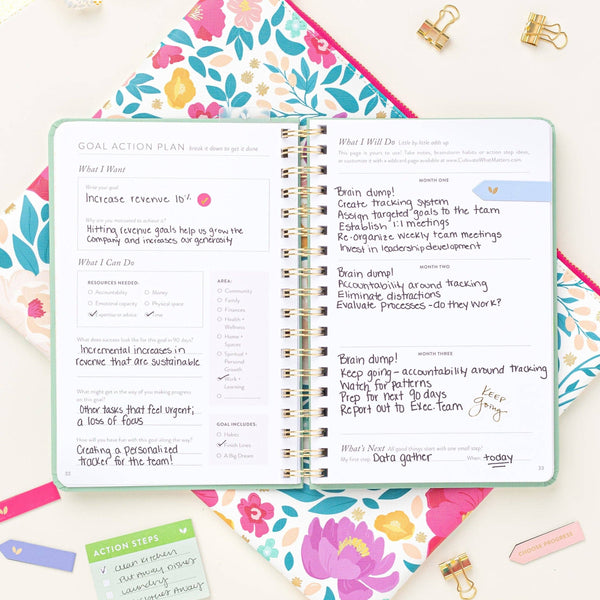 GOAL ACTION PLAN break it down to get it done
What I Want
Write your goal.
Increase revenue 10%
Why are you motivated to achieve it?
Hitting revenue goals help us grow the
company and increases our generosity
What I Can Do
RESOURCES NEEDED:
Accountability
Money
Emotional capacity
Physical space
Expertise or advice
Time
AREA:
Community
Family
Finances
Health +
Wellness
Home +
Spaces
Spiritual +
Personal
Growth
Work +
Learning
What does success look like for this goal in 90 days?
Incremental increases in
revenue that are sustainable
What might get in the way of you making progress
on this goal?
Other tasks that feel urgent;
a loss of focus
GOAL INCLUDES:
Habits
Finish Lines
A Big Dream
How will you have fun with this goal along the way?
Creating a personalized
tracker for the team!
32
What I Will Do Little by little adds up
This page is yours to use! Take notes, brainstorm habits or action step ideas,
or customize it with a wildcard page available at www.CultivateWhatMatters.com.
MONTH ONE
Brain dump!
Create tracking system
Assign targeted goals to the team
Establish 1:1 meetings
Re-organize weekly team meetings
Invest in leadership development
MONTH TWO
Brain dump!
Accountability around tracking
Eliminate distractions
Evaluate processes - do they work?
MONTH THREE
Brain dump!
Keep going - accountability around tracking
Watch for patterns
Prep for next 90 days
Report out to Exec. Team
KEEP
Going
What's Next All good things start with one small step!
My first step: Data gather When: today
33
ACTION STEPS
clean kitchen
Put Away Dishes
Laundry
clothes Away
CHOOSE PROGRESS